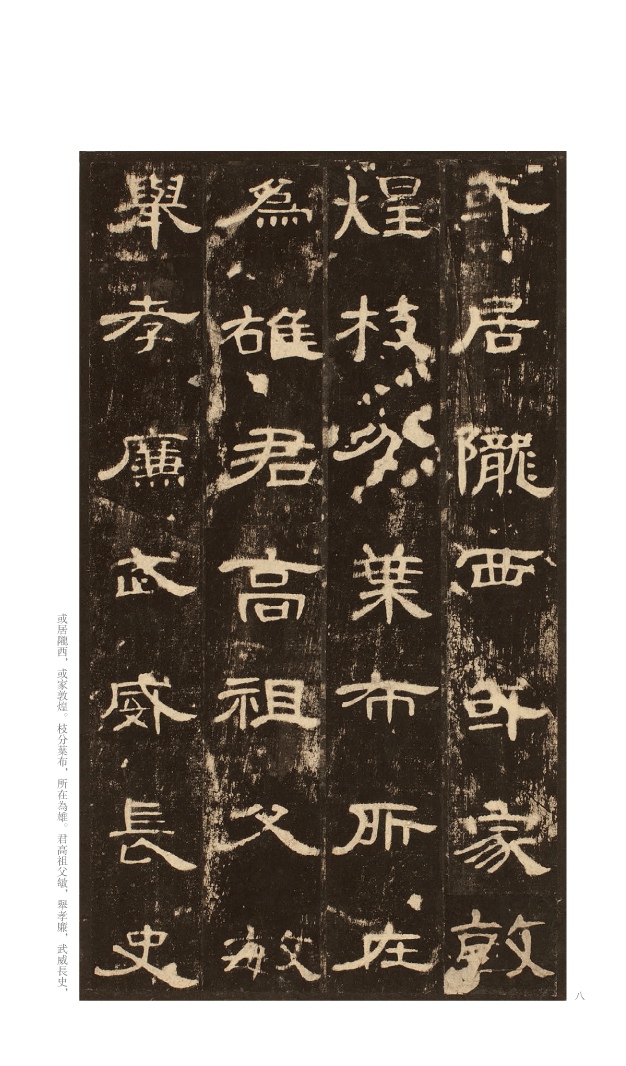 或居隴西或家敦
煌枝分葉布所在
為雄君高祖父敏
舉孝廉武威長史
或居隴西，或家敦煌。枝分葉布，所在為雄。君高祖父敏，舉孝廉，武威長史，
八